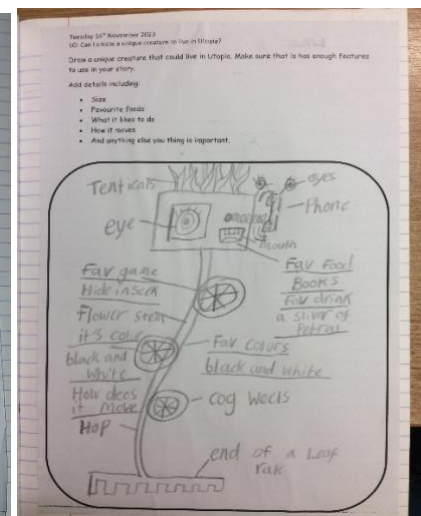 Tuesday 16th November 2023
LO: Can I create a unique creature to live in Utopia?
Draw a unique creature that could live in Utopia. Make sure that is has enough features
to use in your story.
Add details including:
• Size
• Favourite foods
• What it likes to do
• How it moves
• And anything else you thing is important.
Tenticals
eyes
Phone
eye
mouth
Fav game
Hide in seek
Fav Food
Books
Fav drink
a sliver of
Petrol
Flower stem
it's colur
black and
white
Fav colurs
black and white
How does
it move
Hop
cog weels
end of a Leaf
rake